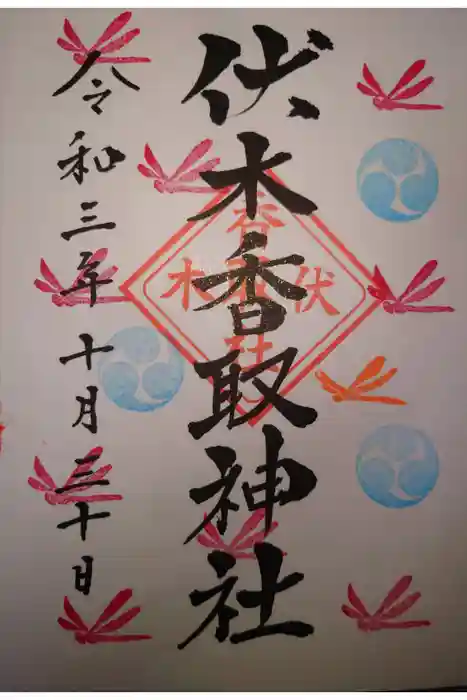 伏木香取神社
令和三年十月三十日
伏木香取神社